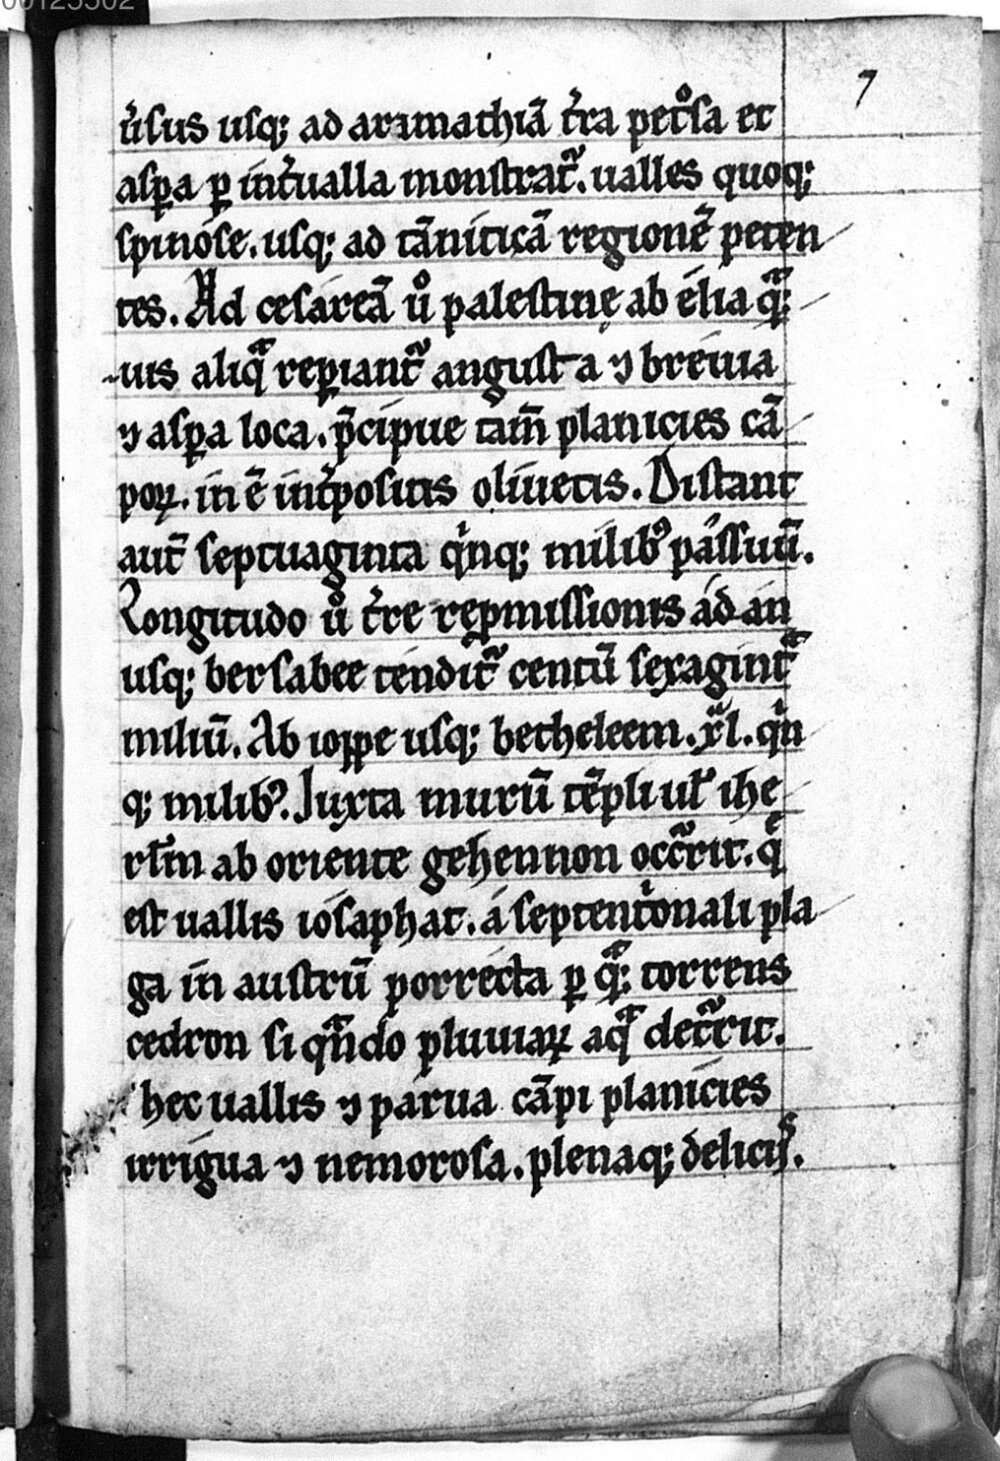 00125502
7
ũsus usq; ad arimathiã t̃ra petͦsa et
asꝑa ꝑ int̃ualla monstrat᷑. ualles quoq;
spinose. usq; ad tãniticã regionẽ peten
tes. Ad cesareã uͦ palestinę ab elia qͣ̃;
uis aliqͣ reꝑiant᷑ angusta ⁊ breuia
⁊ asꝑa loca. p̃cipue tam̃ planicies cã
poꝝ. in ẽ int̃positis oliuetis. Distant
aut̃ septuaginta qͥnq; milibꝰ passuũ.
Longitudo uͦ t̃re repmissionis ad an
usq; bersabee tendit᷑ centũ sexagintͣ
miliũ. Ab ioppe usq; betheleem. xͬl. qͥn
q; milibꝰ. Juxta murũ tẽpli ul̕ ihe
rl̃m ab oriente gehennon occͬrit. qͥ
est uallis iosaphat. a septentͥonali pla
ga in austrũ porrecta ꝑ qͣ; torrens
cedron si qͣndo pluuiaꝝ aqͣ decͬrit.
hec uallis ⁊ parua cãpi planicies
irrigua ⁊ nemorosa. plenaq; deliciiˢ.